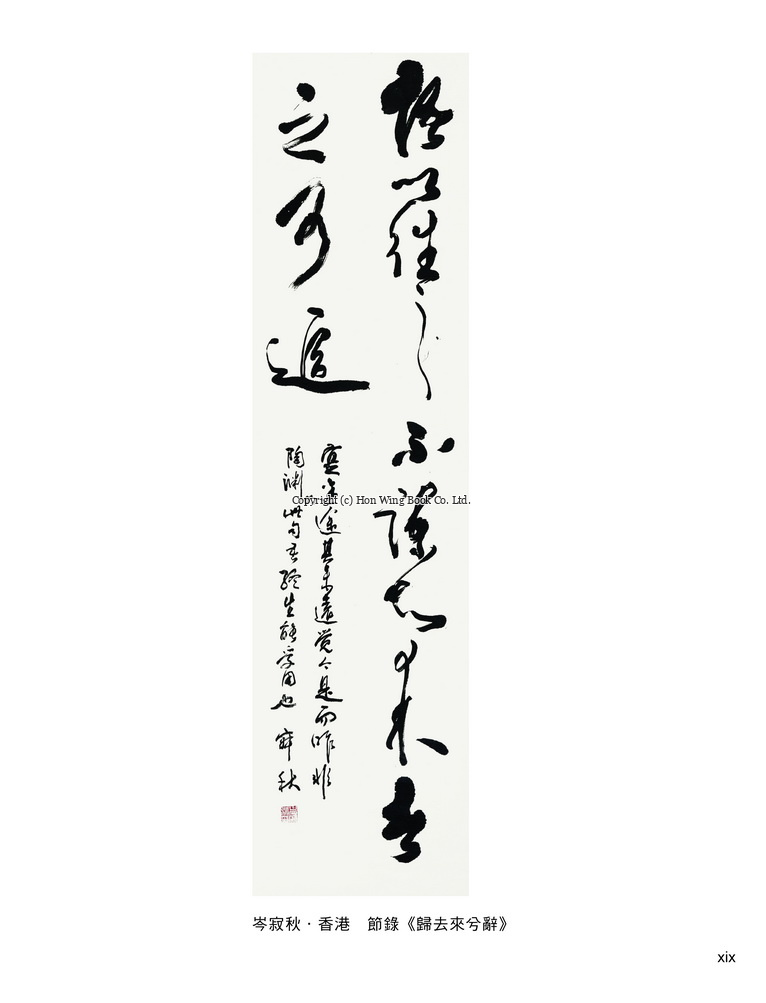 悟以往之不諫知來者
之可追
寔迷途其未遠覺今是而昨非
陶淵此句吾終生能學用也 寂秋
Copyright (c) Hon Wing Book Co. Ltd.
岑寂秋·香港　節錄《歸去來兮辭》
xix